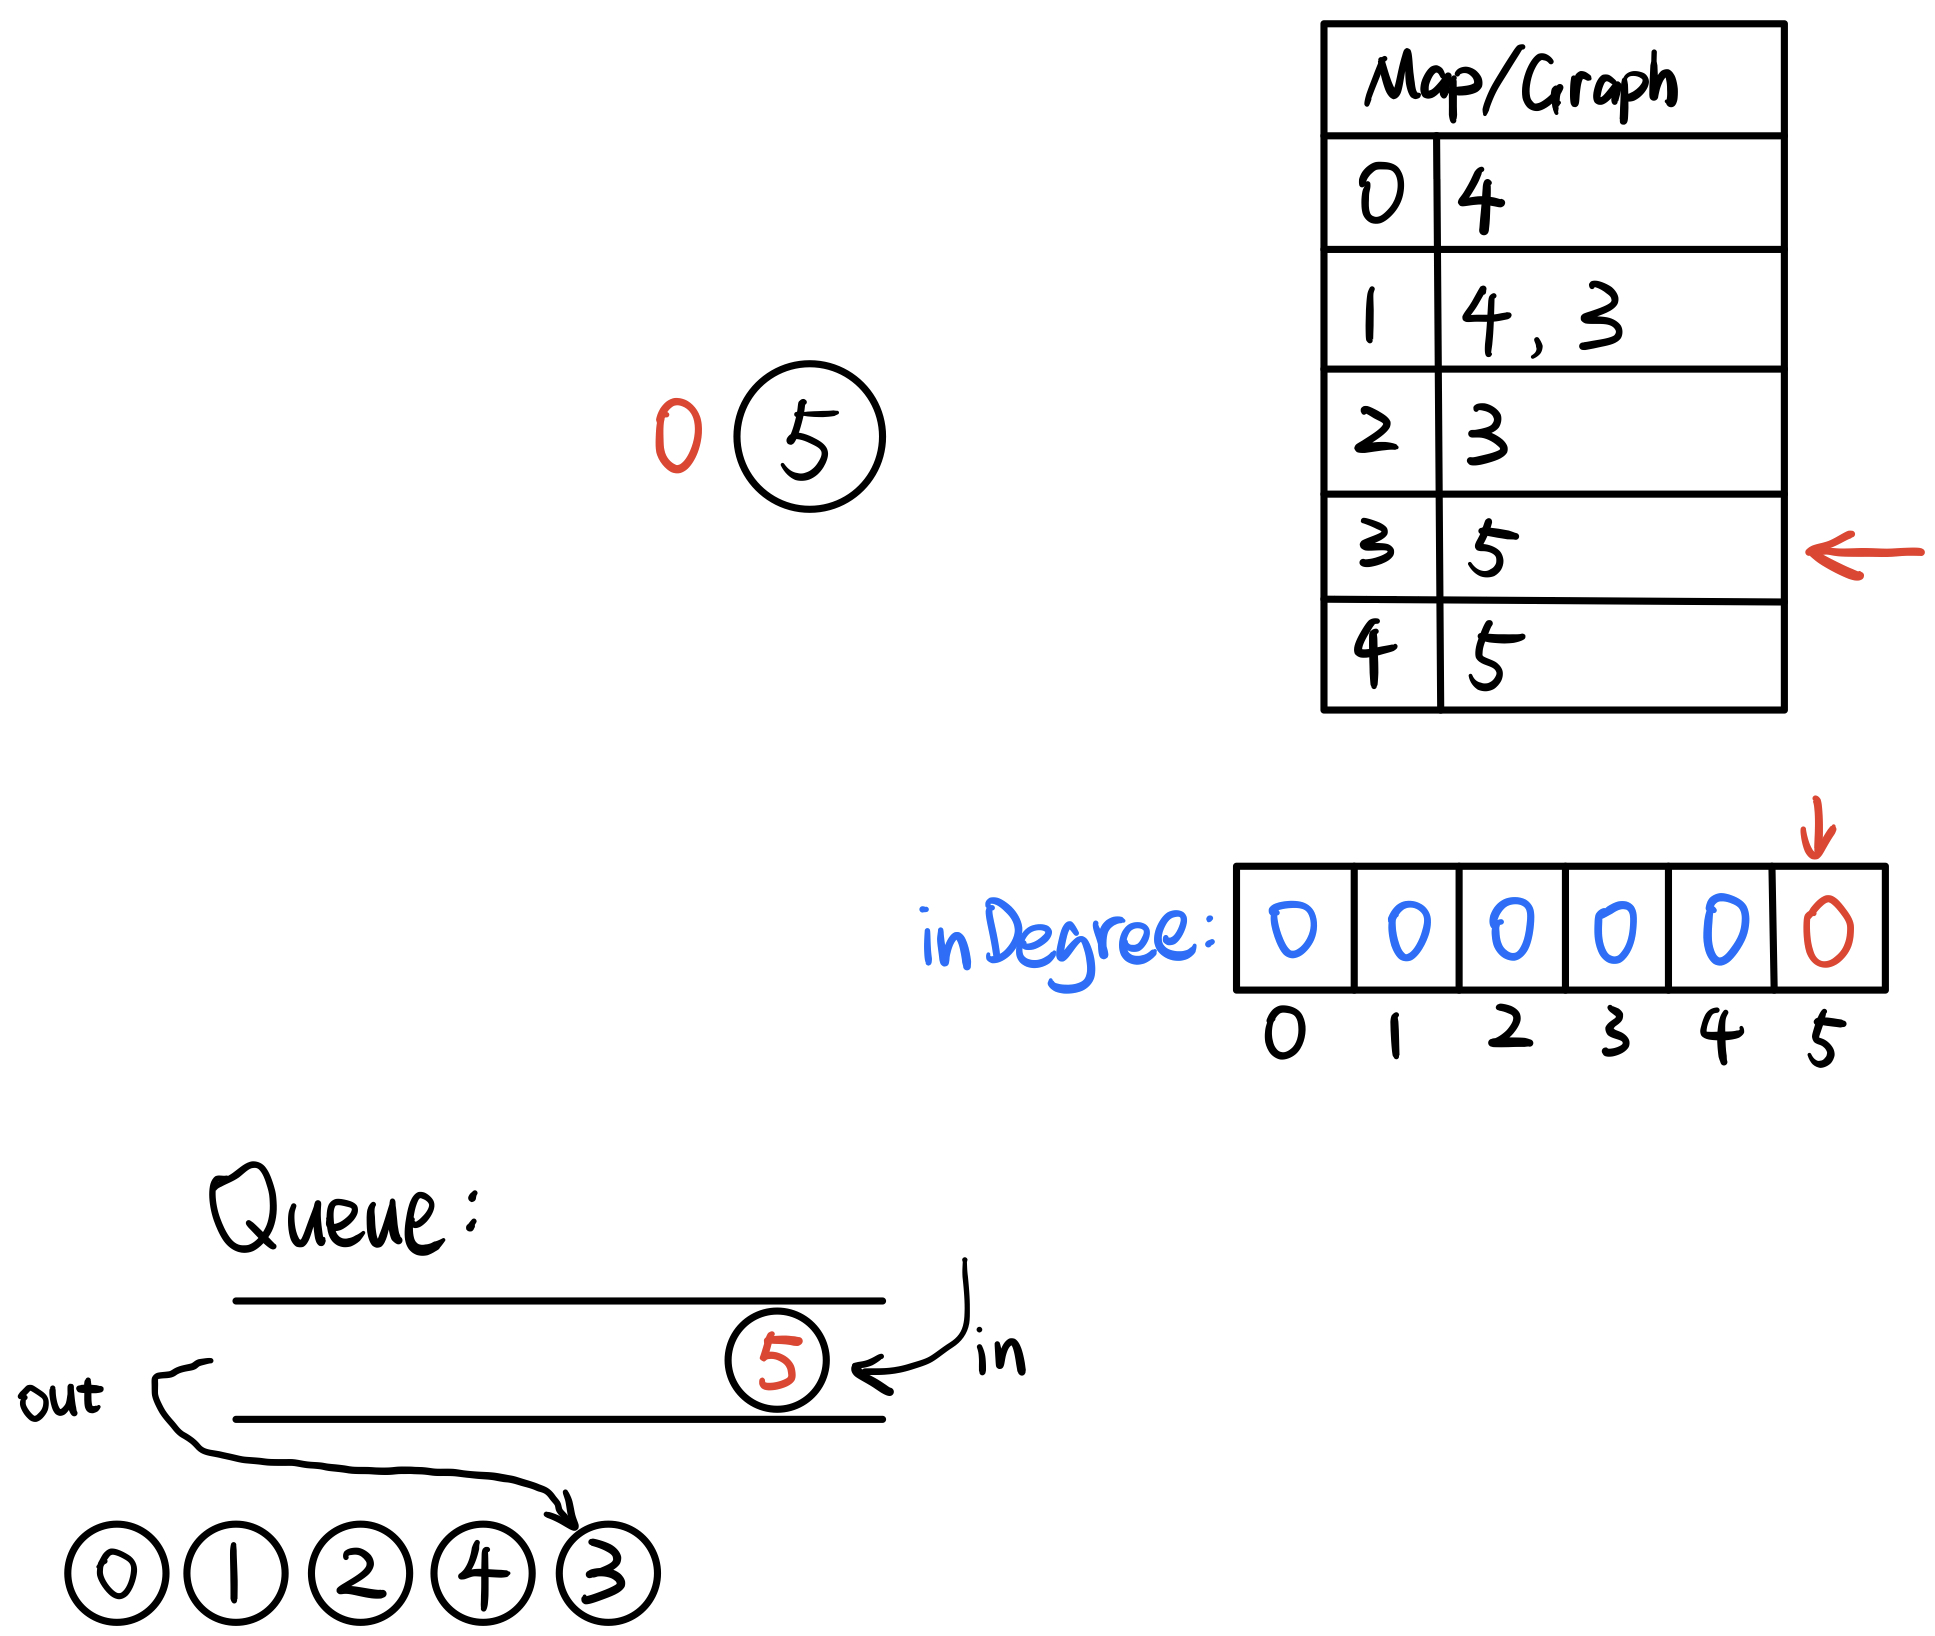 Map/Graph
0 4
1 4, 3
2 3
3 5
4 5
0 5
inDegree: 0 0 0 0 0 0
0 1 2 3 4 5
Queue:
5
in
out
0 1 2 4 3